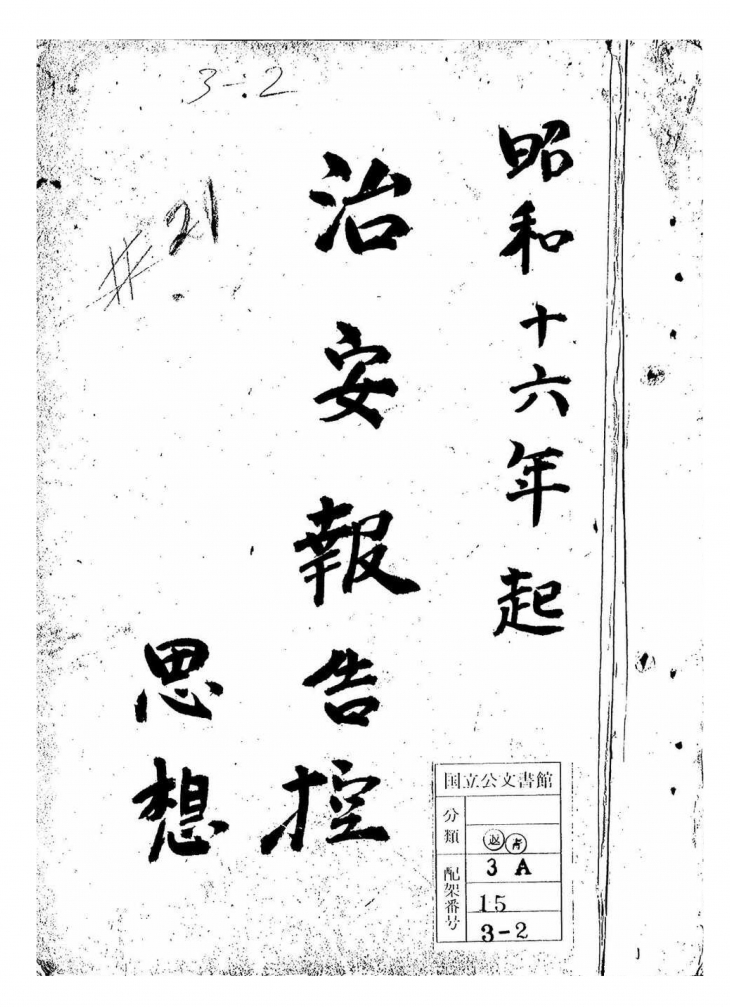 3-2
#21
昭和十六年起
治安報告控
思想
国立公文書館
分類
返 青
配架番号
3 A
15
3-2